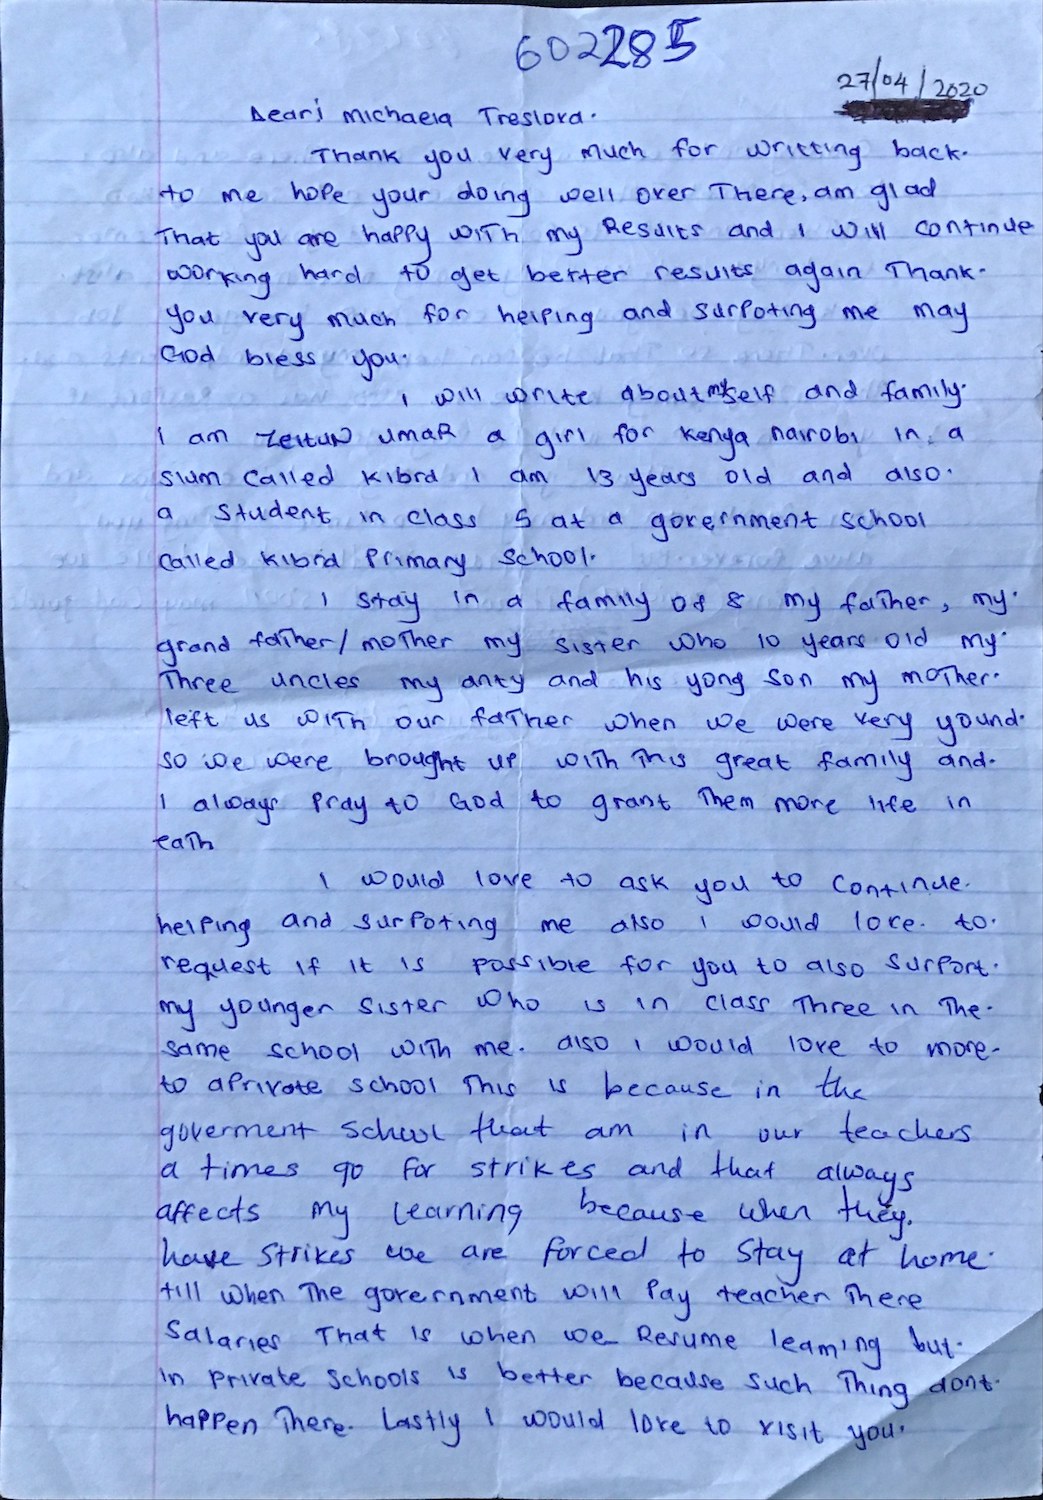 602285
27/04/2020
Dear; Michaela Treslova.
Thank you very much for writting back.
to me hope your doing well over There, am glad
That you are happy with my Results and I will continue
working hard to get better results again Thank.
you very much for helping and surpoting me may
God bless you.
I will write about myself and family.
I am ZEITUN UMAR a girl for Kenya nairobi in a
slum called Kibra I am 13 years old and also.
a student in class 5 at a government school
called Kibra Primary School.
I stay in a family of 8 my father, my.
grand father/mother my sister who 10 years old my.
Three uncles my anty and his yong son my mother.
left us with our father when we were very yound.
so we were brought up with this great family and.
I always pray to God to grant Them more life in
eath
I would love to ask you to continue.
helping and surpoting me also I would love. to.
request if it is possible for you to also surport.
my younger sister who is in class Three in The.
same school with me. also I would love to more.
to aprivate school This is because in the
goverment school that am in our teachers
a times go for strikes and that always
affects my learning because when they.
have strikes we are forced to stay at home.
till when The government will pay teacher There
Salaries That is when we Resume learning but.
in private schools is better because such Thing dont.
happen There. Lastly I would love to visit you.